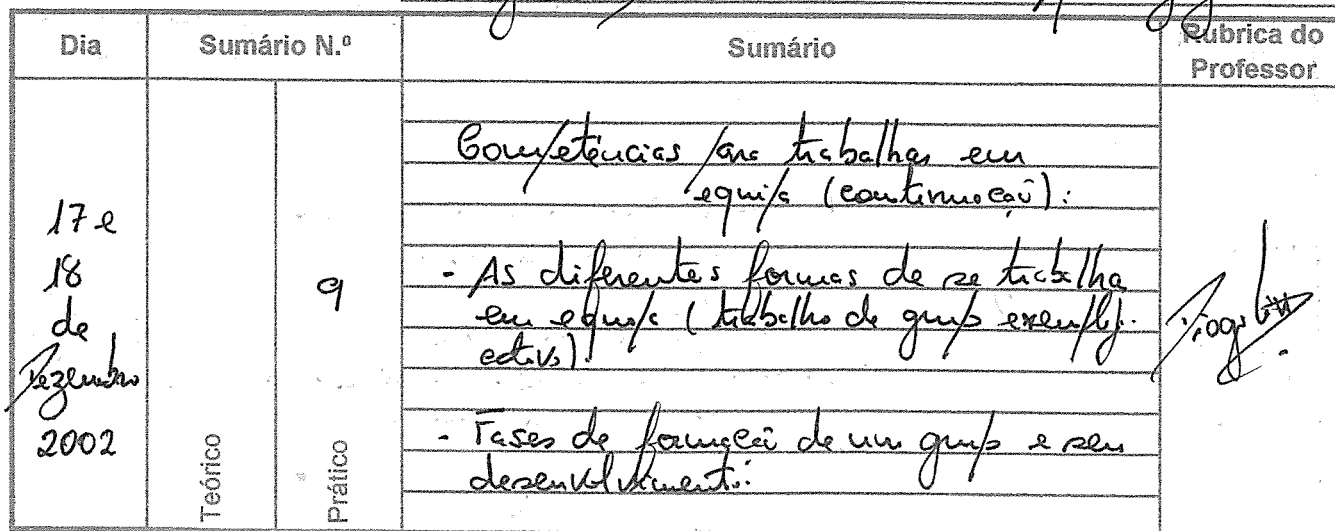 Dia
Sumário N.º
Sumário
Rubrica do
Professor
17 e
18
de
Dezembro
2002
Teórico
9
Prático
Competências para trabalhar em
equipa (continuação):
- As diferentes formas de se trabalhar
em equipa (trabalho de grupo exemplifi-
cativo).
- Fases de formação de um grupo e seu
desenvolvimento: